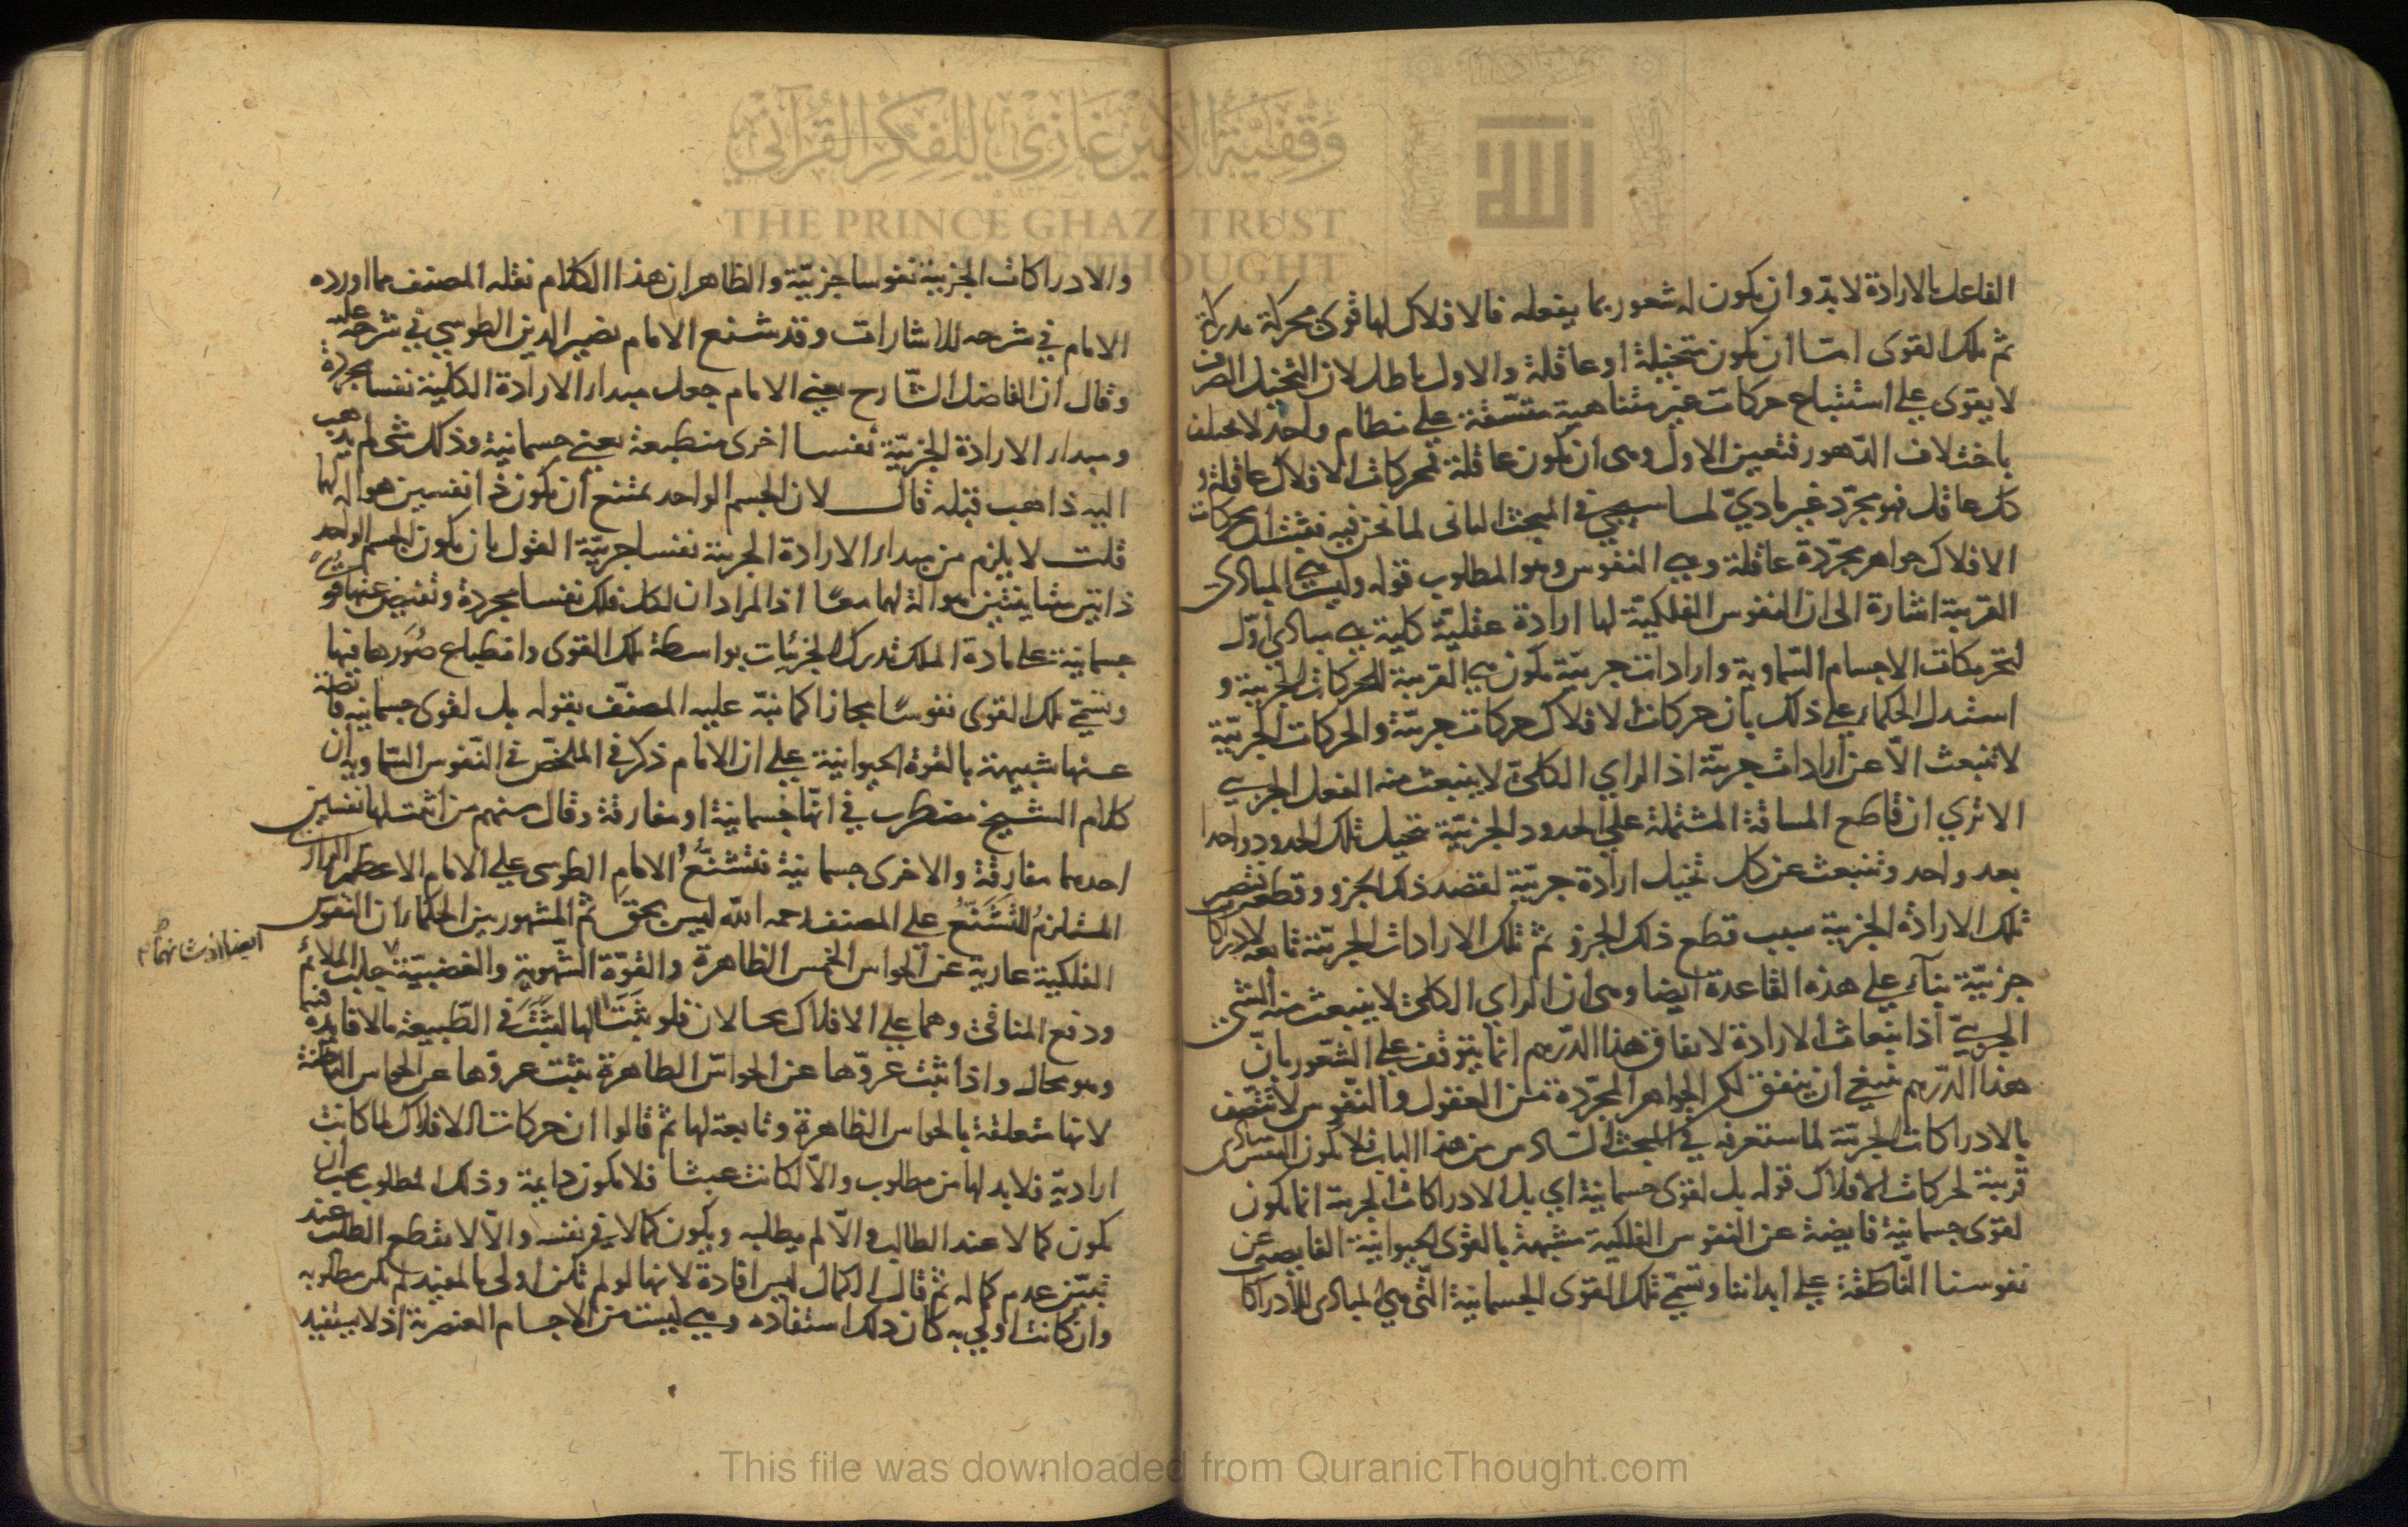 الفاعل بالارادة لابد وان يكون له شعور بما يفعله فالافلاك لها قوى محركة مدركة
ثم تلك القوى امّا ان يكون متخيلة او عاقلة والاول باطل لان التخيل الصرف
لا يقوى على استتباع حركات غير متناهية متسقة على نظام واحد لا يختلف
باختلاف الدهور فتعين الاول وهى ان يكون عاقلة فمحركات الافلاك عاقلة و
كل عاقل فهو مجرّد غير مادىّ لما سيجئ في المبحث الثانى لما نحن فيه فثبت ان محركات
الافلاك جواهر مجرّدة عاقلة وهي النفوس وهو المطلوب قوله وليست هي المبادى
القريبة اشارة الى ان النفوس الفلكيّة لها ارادة عقليّة كلية هي مبادى اوّل
لتحريكات الاجسام السّماوية وارادات جزئيّة تكون هي القريبة للحركات الجزئية و
استدل الحكماء على ذلك بان حركات الافلاك حركات جزئيّة والحركات الجزئيّة
لا تنبعث الّا عن ارادات جزئيّة اذ الراي الكلىّ لا ينبعث منه الفعل الجزئي
الا ترى ان قاطع المسافة المشتملة على الحدود الجزئيّة تخيل تلك الحدود واحدا
بعد واحد وتنبعث عن كل تخيل ارادة جزئيّة لقصد ذلك الجزو وقطعه فتصير
تلك الارادة الجزئية سبب قطع ذلك الجزو ثم تلك الارادات الجزئيّة تابعة لادراكات
جزئيّة بناء على هذه القاعدة ايضا وهى ان الراي الكلى لا ينبعث منه الشئ
الجزئيّ اذ انبعاث الارادة لانفاق هذا الدّرهم انما يتوقف على الشّعور بانّ
هذا الدّرهم ينبغي ان ينفق لكن الجواهر المجرّدة من العقول والنّفوس لا تتّصف
بالادراكات الجزئيّة لما ستعرفه في المبحث السّادس من هذا الباب فلا تكون النفس مبادى
قريبة لحركات الافلاك قوله بل لقوى جسمانية اي بل الادراكات الجزئية انما يكون
لقوى جسمانية فايضة عن النفوس الفلكية مشبهة بالقوى الحيوانيّة الفايضة عن
نفوسنا النّاطقة على ابداننا وتسمّى تلك القوى الجسمانية الّتى هي المبادى للادراكا
والادراكات الجزئية نفوسا جزئيّة والظاهر ان هذا الكلام نقله المصنف مما اورده
الامام في شرحه للاشارات وقد شنع الامام نصير الدين الطوسي في شرحه عليه
وقال ان الفاضل الشّارح يعني الامام جعل مبداء الارادة الكليّة نفسا مجردة
ومبداء الارادة الجزئيّة نفسا اخرى منطبعة يعني جسمانية وذلك شئ لم يذهب
اليه ذاهب قبله قال لان الجسم الواحد يمتنع ان يكون ذا نفسين هو اله لهما
قلت لا يلزم من مبداء الارادة الجزئية نفسا جزئيّة القول بان يكون الجسم الواحد
ذاتين متباينتين هو الة لهما معًا اذ المراد ان لكل فلك نفسا مجردة وتفيض عنها قوىً
جسمانية على مادة الفلك تدرك الجزئيات بواسطة تلك القوى وانطباع صُوَرها فيها
وتسمّى تلك القوى نفوسًا مجازا كما نبّه عليه المصنّف بقوله بل لقوى جسمانيه فايضة
عنها شبيهة بالقوة الحيوانية على ان الامام ذكر في الملخّص في النّفوس السّماويه ان
كلام الشيخ مضطرب في انّها جسمانية او مفارقة وقال منهم من اثبت لها نفسين
احديهما مفارقة والاخرى جسمانية فتشنّع الامام الطوسى على الامام الاعظم الرازى
المستلزم للتشنع على المصنف رحمه الله ليس بحق ثم المشهور بين الحكماء ان النفوس
الفلكية عارية عن الحواس الخمس الظاهرة والقوّة الشّهوية والغضبيّة جلب الملائم
ودفع المنافى وهما على الافلاك محالان فلو ثبتتا لها لثبتتا في الطّبيعة بلا فايدة
وهو محال واذا ثبت عروّها عن الحواسّ الظاهرة يثبت عروّها عن الحواس الباطنة
لانها متعلقة بالحواس الظاهرة وتابعة لها ثم قالوا ان حركات الافلاك لما كانت
اراديّة فلابد لها من مطلوب والّا لكانت عبثا فلا تكون دايمة وذلك المطلوب يجب ان
يكون كمالا عند الطالب والّا لم يطلبه ويكون كمالا في نفسه والّا لانقطع الطلب عند
تبيّن عدم كماله ثم قال الكمال ليس افادة لانها لو لم تكن اولى بالمفيد لم تكن مطلوبه
وان كانت اولى به كان ذلك استفاده وهي ليست من الاجسام العنصرية اذ لا يستفيد
وَقْفِيَّةُ الأَمِيرْ غَازِي لِلْفِكْرِ الْقُرْآنِيّ
THE PRINCE GHAZI TRUST
THOUGHT
الله
This file was downloaded from QuranicThought.com